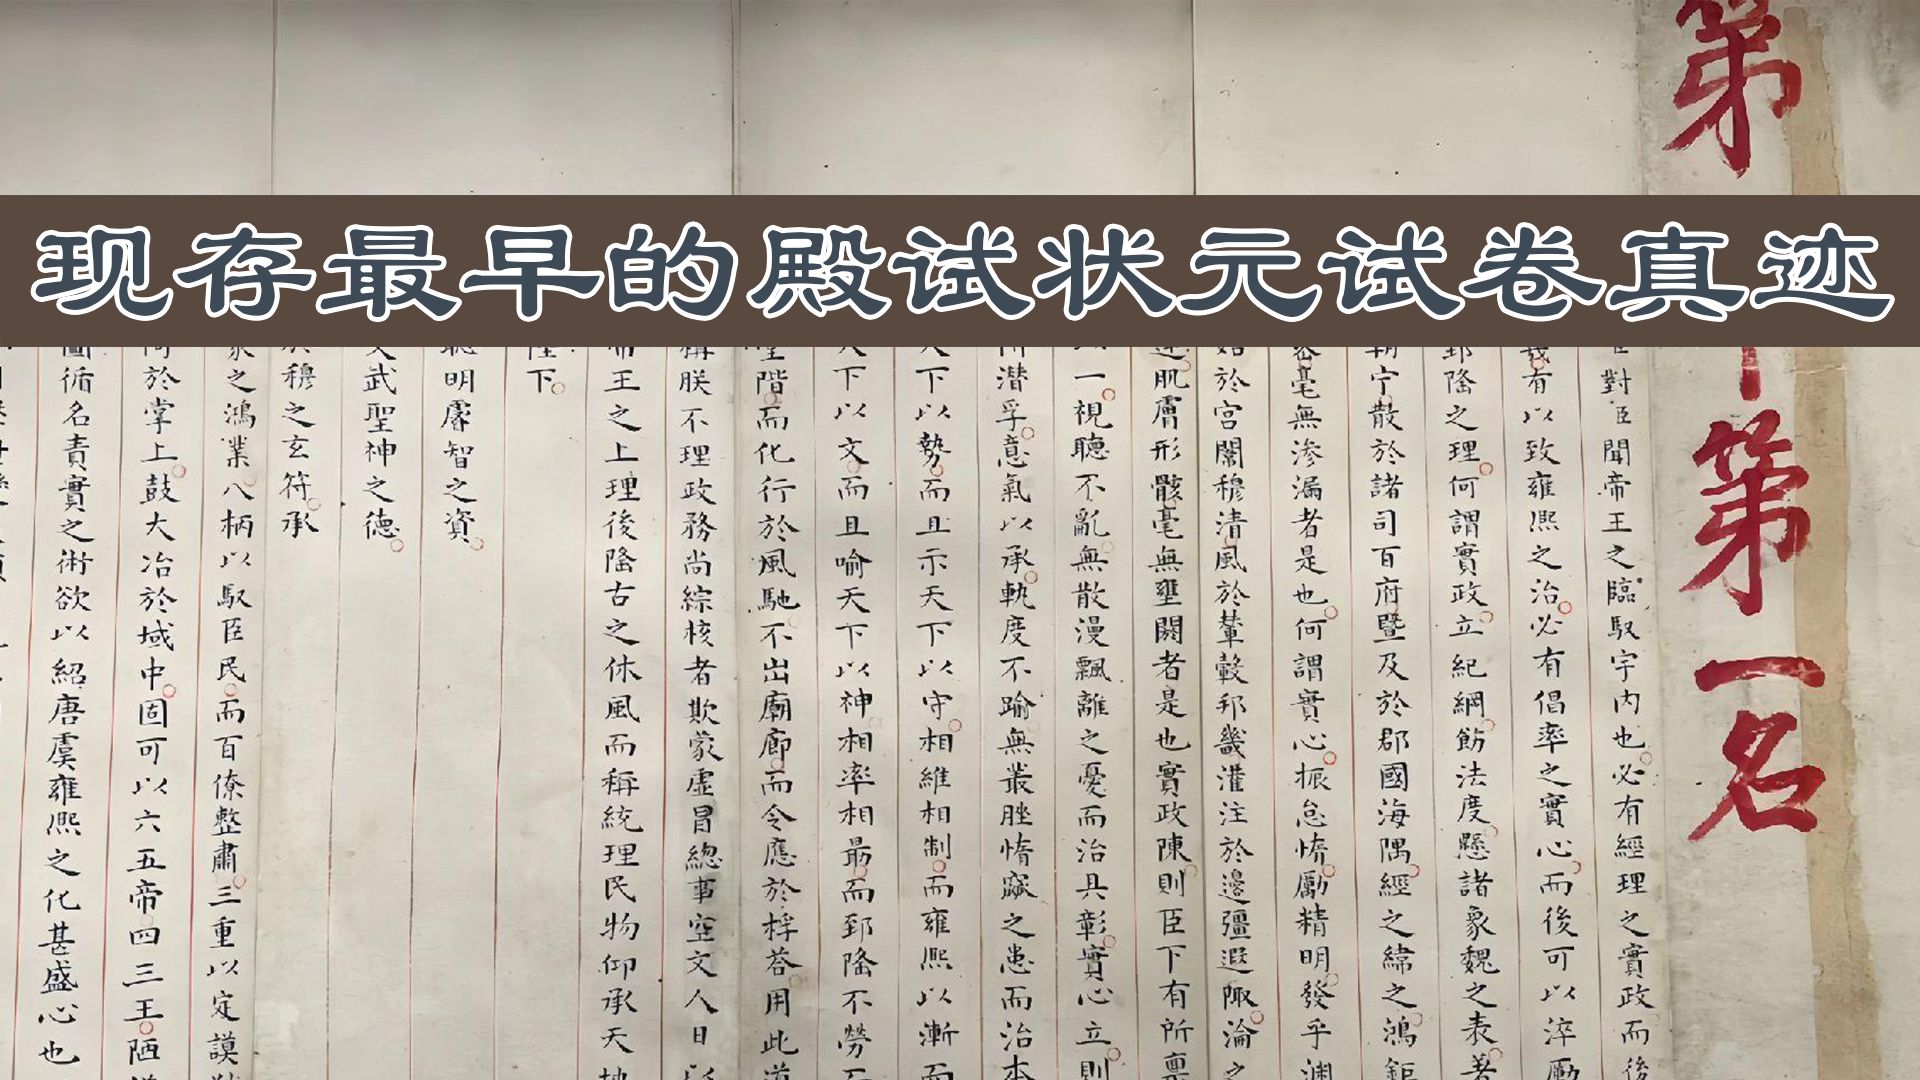 现存最早的殿试状元试卷真迹
第
一甲第一名
臣對臣聞帝王之臨馭宇内也必有經理之實政而後
有以致雍熙之治必有倡率之實心而後可以淬勵
郅隆之理何謂實政立紀綱飭法度懸諸象魏之表著
朝宁散於諸司百府暨及於郡國海隅經之緯之鴻鉅
毫無滲漏者是也何謂實心振怠惰勵精明發乎淵
始於宮闈穆清風於輦轂邦畿灌注於邊疆遐陬淪之
肌膚形骸毫無壅閼者是也實政陳則臣下有所稟
一視聽不亂無散漫飄離之憂而治具彰實心立則
潜孚意氣以承軌度不踰無叢脞惰窳之患而治本
天下以勢而且示天下以守相維相制而雍熙以漸而
天下以文而且喻天下以神相率相最而郅隆不勞
聖階而化行於風馳不出廟廊而令應於桴荅用此道
稱朕不理政務尚綜核者欺蒙虛冒總事空文人日
帝王之上理後隆古之休風而稱統理民物仰承天地
陛下
聰明睿智之資
文武聖神之德
於穆之玄符承
之鴻業八柄以馭臣民而百僚整肅三重以定謨
於掌上鼓大冶於域中固可以六五帝四三王陋
圖循名責實之術欲以紹唐虞雍熙之化甚盛心也